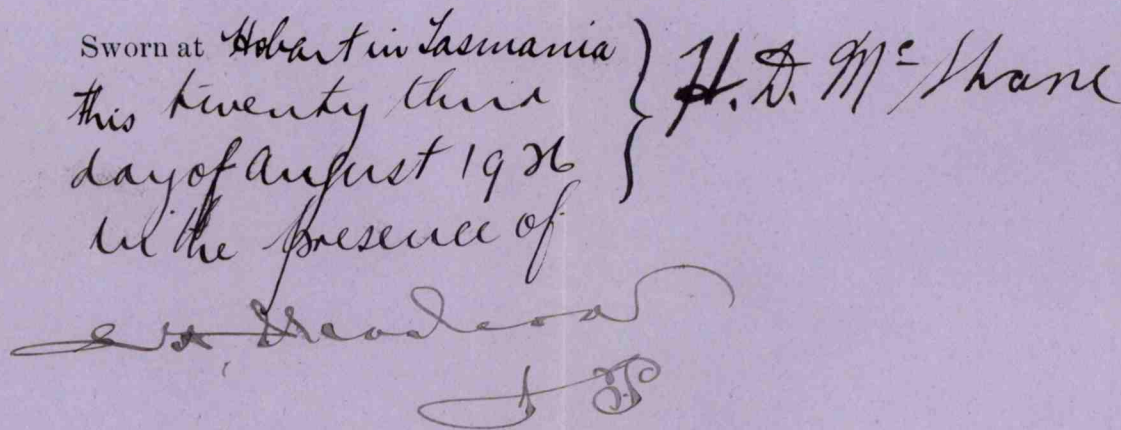 Sworn at Hobart in Tasmania
this twenty third
day of August 1926
in the presence of
H. D. McShane
J P